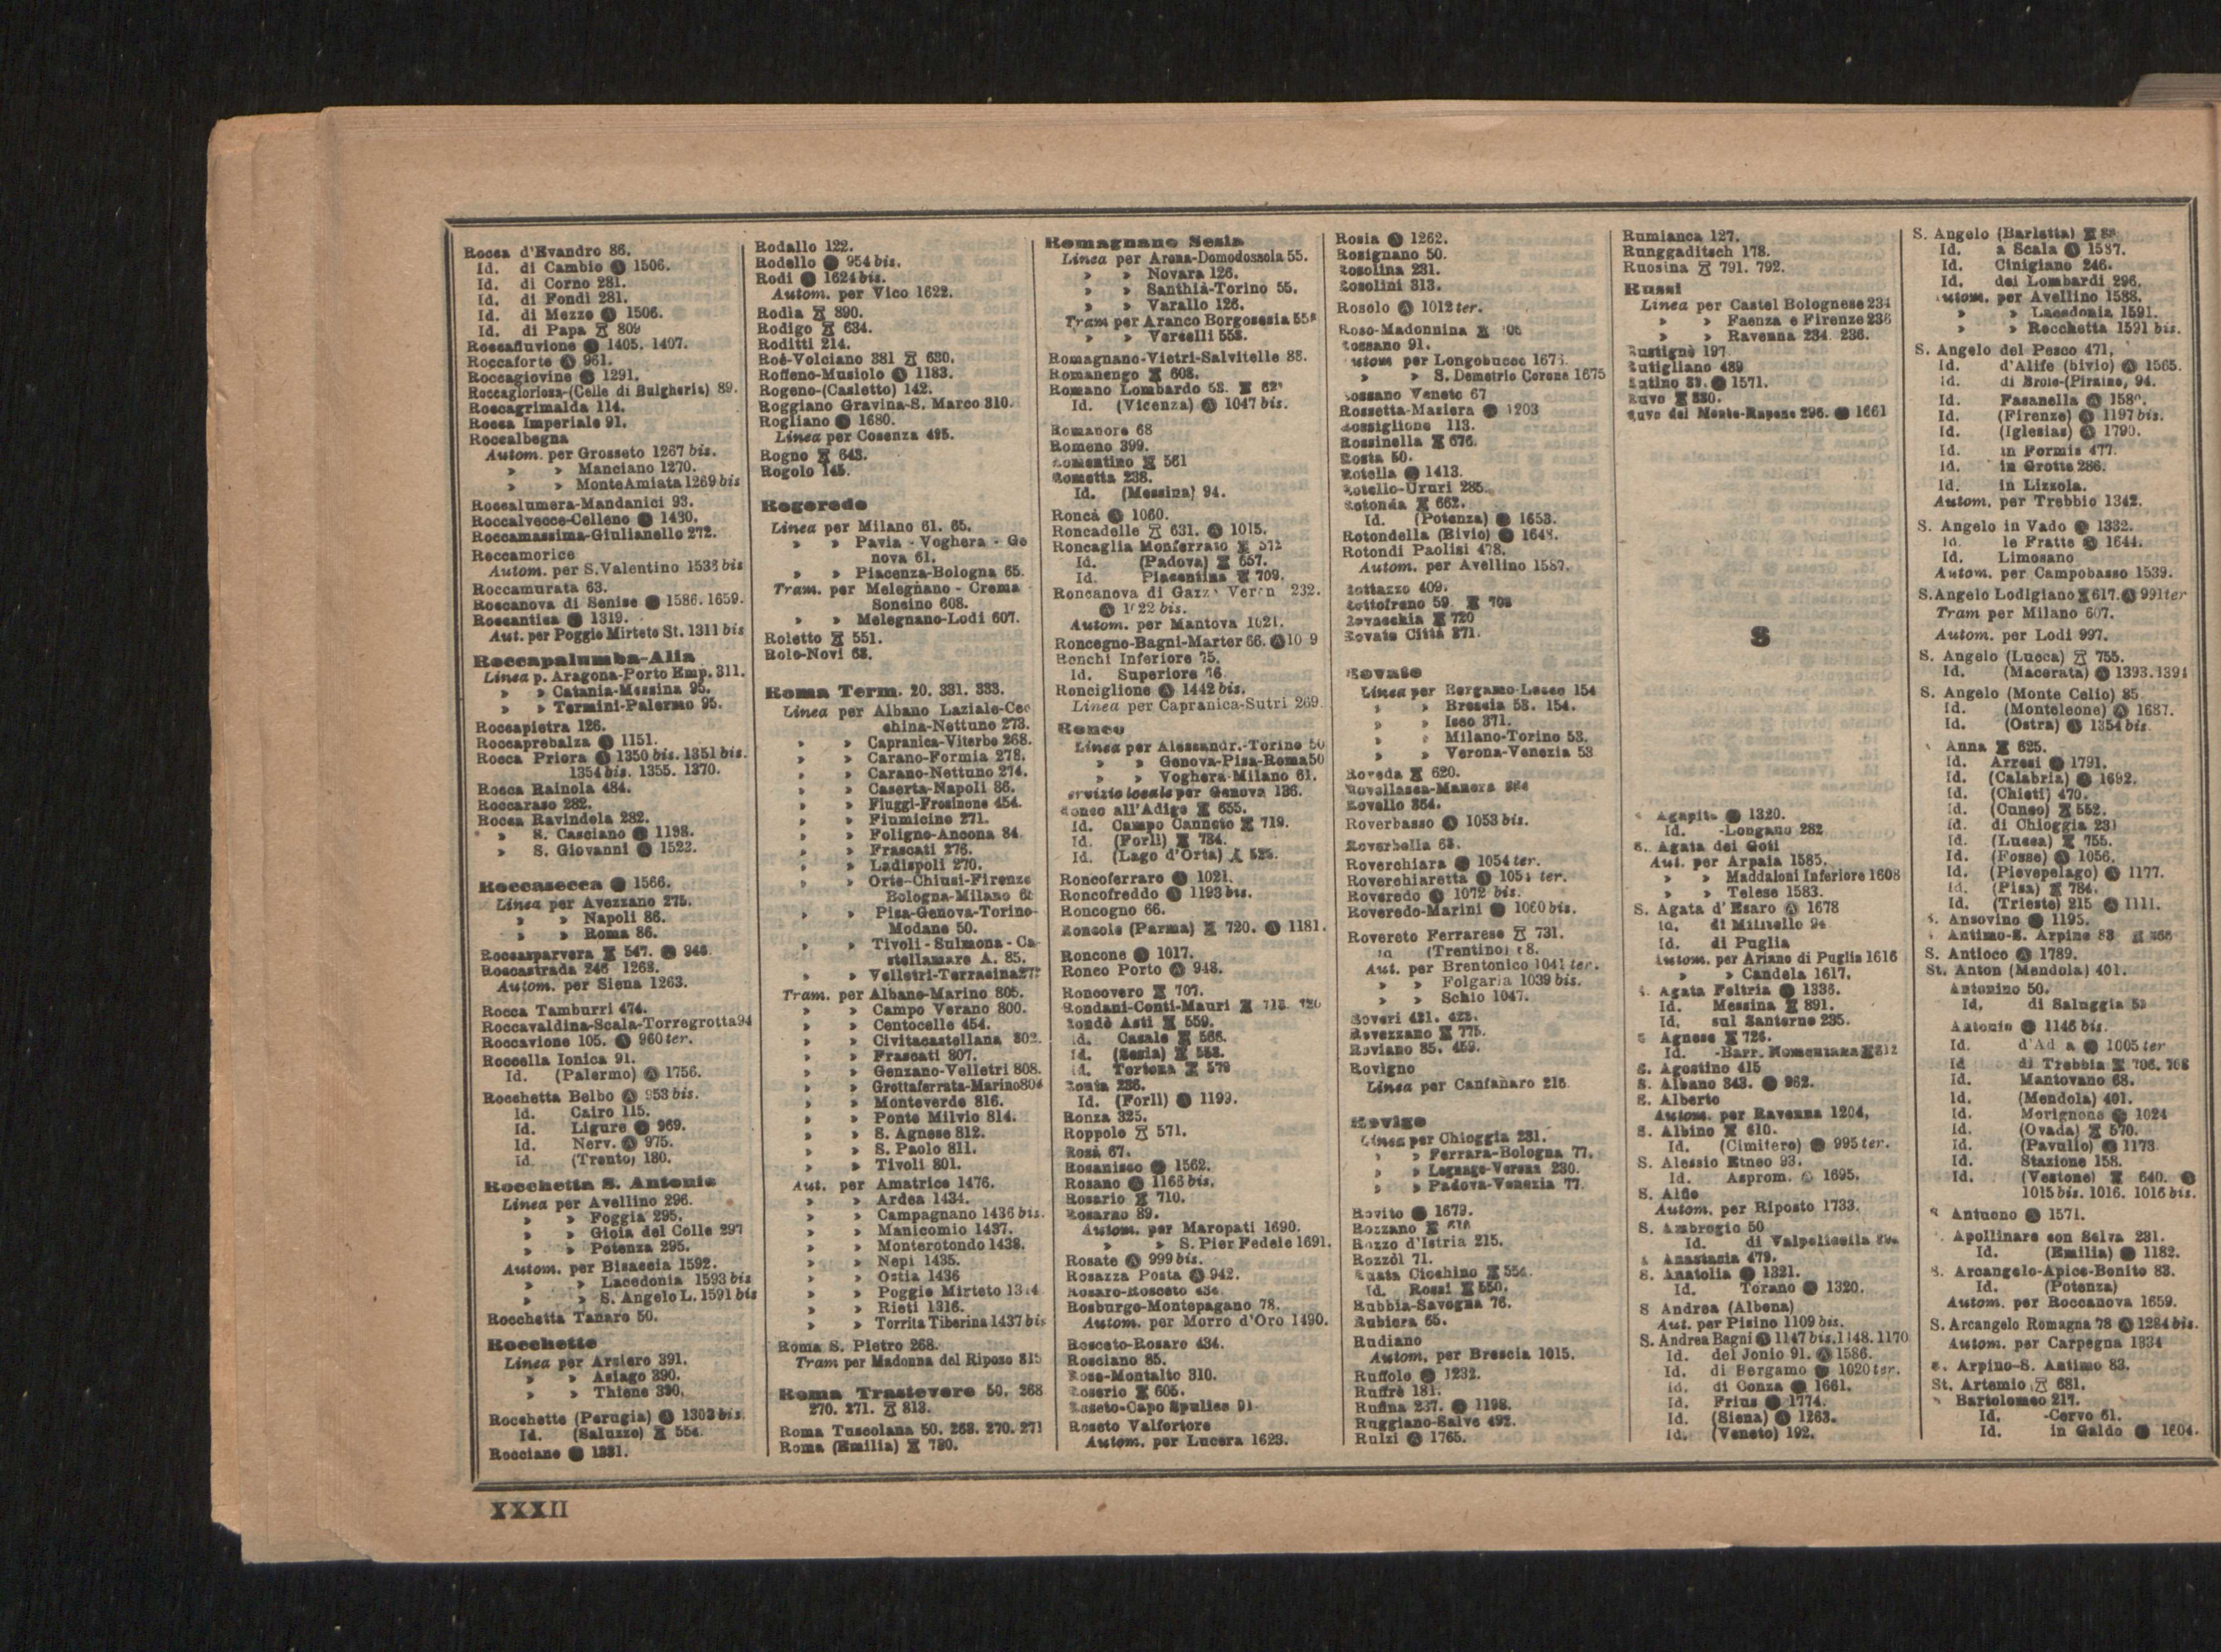 Rocca d'Evandro 86.
Id. di Cambio Ⓐ 1506.
Id. di Corno 281.
Id. di Fondi 281.
Id. di Mezzo Ⓐ 1506.
Id. di Papa 809
Roccafluvione Ⓐ 1405. 1407.
Roccaforte Ⓐ 961.
Roccagiovine Ⓐ 1291.
Roccagloriosa-(Celle di Bulgheria) 89.
Roccagrimalda 114.
Rocca Imperiale 91.
Roccalbegna
Autom. per Grosseto 1267 bis.
» » Manciano 1270.
» » Monte Amiata 1269 bis
Roccalumera-Mandanici 93.
Roccalvecce-Celleno Ⓐ 1430.
Roccamassima-Giulianello 272.
Roccamorice
Autom. per S. Valentino 1536 bis
Roccamurata 63.
Roccanova di Senise Ⓐ 1586. 1659.
Roccantica Ⓐ 1319.
Aut. per Poggio Mirteto St. 1311 bis
Roccapalumba-Alia
Linea p. Aragona-Porto Emp. 311.
» » Catania-Messina 95.
» » Termini-Palermo 95.
Roccapietra 126.
Roccaprebalza Ⓐ 1151.
Rocca Priora Ⓐ 1350 bis. 1351 bis.
1354 bis. 1355. 1370.
Rocca Rainola 484.
Roccaraso 282.
Rocca Ravindola 282.
» S. Casciano Ⓐ 1198.
» S. Giovanni Ⓐ 1522.
Roccasecca Ⓐ 1566.
Linea per Avezzano 275.
» » Napoli 86.
» » Roma 86.
Roccasparvera 547. Ⓐ 946.
Roccastrada 246 1263.
Autom. per Siena 1263.
Rocca Tamburri 474.
Roccavaldina-Scala-Torregrotta 94
Roccavione 105. Ⓐ 960 ter.
Roccella Ionica 91.
Id. (Palermo) Ⓐ 1756.
Rocchetta Belbo Ⓐ 953 bis.
Id. Cairo 115.
Id. Ligure Ⓐ 969.
Id. Nerv. Ⓐ 975.
Id. (Trento) 180.
Rocchetta S. Antonio
Linea per Avellino 296.
» » Foggia 295.
» » Gioia del Colle 297
» » Potenza 295.
Autom. per Bisaccia 1592.
» » Lacedonia 1593 bis
» » S. Angelo L. 1591 bis
Rocchetta Tanaro 50.
Rocchette
Linea per Arsiero 391.
» » Asiago 390.
» » Thiene 390.
Rocchette (Perugia) Ⓐ 1303 bis.
Id. (Saluzzo) 554.
Rocciano Ⓐ 1331.
Rodallo 122.
Rodello Ⓐ 954 bis.
Rodi Ⓐ 1624 bis.
Autom. per Vico 1622.
Rodìa 890.
Rodigo 634.
Roditti 214.
Roè-Volciano 381 630.
Roffeno-Musiolo Ⓐ 1183.
Rogeno-(Casletto) 142.
Roggiano Gravina-S. Marco 310.
Rogliano Ⓐ 1680.
Linea per Cosenza 495.
Rogno 643.
Rogolo 145.
Rogoredo
Linea per Milano 61. 65.
» » Pavia - Voghera - Ge
nova 61.
» » Piacenza-Bologna 65.
Tram. per Melegnano - Crema -
Soncino 608.
» » Melegnano-Lodi 607.
Roletto 551.
Rolo-Novi 68.
Roma Term. 20. 331. 333.
Linea per Albano Laziale-Cec
china-Nettuno 273.
» » Capranica-Viterbo 268.
» » Carano-Formia 278.
» » Carano-Nettuno 274.
» » Caserta-Napoli 86.
» » Fiuggi-Frosinone 454.
» » Fiumicino 271.
» » Foligno-Ancona 84
» » Frascati 276.
» » Ladispoli 270.
» » Orte-Chiusi-Firenze
Bologna-Milano
» » Pisa-Genova-Torino-
Modane 50.
» » Tivoli - Sulmona - Ca-
stellamare A. 85.
» » Velletri-Terracina
Tram. per Albano-Marino 805.
» » Campo Verano 800.
» » Centocelle 454.
» » Civitacastellana 802.
» » Frascati 807.
» » Genzano-Velletri 808.
» » Grottaferrata-Marino
» » Monteverde 816.
» » Ponte Milvio 814.
» » S. Agnese 812.
» » S. Paolo 811.
» » Tivoli 801.
Aut. per Amatrice 1476.
» » Ardea 1434.
» » Campagnano 1436 bis.
» » Manicomio 1437.
» » Monterotondo 1438.
» » Nepi 1435.
» » Ostia 1436
» » Poggio Mirteto
» » Rieti 1316.
» » Torrita Tiberina 1437 bis
Roma S. Pietro 268.
Tram per Madonna del Riposo 815
Roma Trastevere 50. 268
270. 271. 813.
Roma Tuscolana 50. 268. 270. 271
Roma (Emilia) 730.
Romagnano Sesia
Linea per Arona-Domodossola 55.
» » Novara 126.
» » Santhià-Torino 55.
» » Varallo 126.
Tram per Aranco Borgosesia
» » Vercelli 558.
Romagnano-Vietri-Salvitelle 88.
Romanengo 608.
Romano Lombardo 53.
Id. (Vicenza) Ⓐ 1047 bis.
Romanore 68
Romeno 399.
Romentino 561
Rometta 238.
Id. (Messina) 94.
Roncà Ⓐ 1060.
Roncadelle 631. Ⓐ 1015.
Roncaglia Monferrato 572
Id. (Padova) 657.
Id. Piacentina 709.
Roncanova di Gazz Veron 232.
Ⓐ 1022 bis.
Autom. per Mantova 1021.
Roncegno-Bagni-Marter 66. Ⓐ
Ronchi Inferiore 75.
Id. Superiore 76
Ronciglione Ⓐ 1442 bis.
Linea per Capranica-Sutri 269
Ronco
Linea per Alessandr.-Torino 50
» » Genova-Pisa-Roma 50
» » Voghera-Milano 61.
ervizio locale per Genova 136.
Ronco all'Adige 655.
Id. Campo Canneto 719.
Id. (Forlì) 734.
Id. (Lago d'Orta)
Roncoferraro Ⓐ 1021.
Roncofreddo Ⓐ 1193 bis.
Roncogno 66.
Roncole (Parma) 720. Ⓐ 1181.
Roncone Ⓐ 1017.
Ronco Porto Ⓐ 948.
Roncovero 707.
Rondani-Conti-Mauri 718 720
Rondò Asti 559.
Id. Casale 566.
Id. (Sesia) 558.
Id. Tortona 579
Ronta 236.
Id. (Forlì) Ⓐ 1199.
Ronza 325.
Roppolo 571.
Rosà 67.
Rosanisco Ⓐ 1562.
Rosano Ⓐ 1166 bis.
Rosario 710.
Rosarno 89.
Autom. per Maropati 1690.
» » S. Pier Fedele 1691.
Rosate Ⓐ 999 bis.
Rosazza Posta Ⓐ 942.
Rosaro-Rosceto 434
Rosburgo-Montepagano 78.
Autom. per Morro d'Oro 1490.
Rosceto-Rosaro 434.
Rosciano 85.
Rose-Montalto 310.
Roserio 605.
Roseto-Capo Spulico 91
Roseto Valfortore
Autom. per Lucera 1623.
Rosia Ⓐ 1262.
Rosignano 50.
Rosolina 231.
Rosolini 313.
Rosolo Ⓐ 1012 ter.
Roso-Madonnina
Rossano 91.
utom per Longobucco
» » S. Demetrio Corone 1675
Rossano Veneto 67
Rossetta-Maziera Ⓐ 1203
Rossiglione 113.
Rossinella 676.
Rosta 50.
Rotella Ⓐ 1413.
Rotello-Ururi 285.
Rotonda 662.
Id. (Potenza) Ⓐ 1653.
Rotondella (Bivio) Ⓐ 1648.
Rotondi Paolisi 478.
Autom. per Avellino 1587.
Rottazzo 409.
Rottofreno 59 708
Rovacchia 720
Rovato Città 371.
Rovato
Linea per Bergamo-Lecco 154
» » Brescia 53. 154.
» » Iseo 371.
» » Milano-Torino 53.
» » Verona-Venezia 53
Roveda 620.
Rovellasca-Manera 364
Rovello 364.
Roverbasso Ⓐ 1053 bis.
Roverbella 68.
Roverchiara Ⓐ 1054 ter.
Roverchiaretta Ⓐ ter.
Roveredo Ⓐ 1072 bis.
Roveredo-Marini Ⓐ 1060 bis.
Rovereto Ferrarese 731.
Id (Trentino) 8.
Aut. per Brentonico 1041 ter.
» » Folgaria 1039 bis.
» » Schio 1047.
Roveri 421. 423.
Rovezzano 775.
Roviano 85. 459.
Rovigno
Linea per Canfanaro 216
Rovigo
Linea per Chioggia 231.
» » Ferrara-Bologna 77.
» » Legnago-Verona 230.
» » Padova-Venezia 77
Rovito Ⓐ 1679.
Rozzano 616
Rozzo d'Istria 215.
Rozzòl 71.
Ruata Cicchino 554.
Id. Rossi 550.
Rubbia-Savogna 76.
Rubiera 65.
Rudiano
Autom. per Brescia 1015.
Ruffolo Ⓐ 1232.
Ruffrè 181.
Rufina 237. Ⓐ 1198.
Ruggiano-Salve 492.
Rulzi Ⓐ 1765.
Rumianca 127.
Runggaditsch 178.
Ruosina 791. 792.
Russi
Linea per Castel Bolognese 234
» » Faenza e Firenze 236
» » Ravenna 234. 236.
Rustignè 197
Rutigliano 489
Rutino 89. Ⓐ 1571.
Ruvo 830.
Ruvo del Monte-Rapone 296. Ⓐ 1661
S
S. Agapito Ⓐ 1320.
Id. -Longano 282
S. Agata dei Goti
Aut. per Arpaia 1585.
» » Maddaloni Inferiore 1608
» » Telese 1583.
S. Agata d'Esaro Ⓐ 1678
Id. di Militello 94
Id. di Puglia
Autom. per Ariano di Puglia 1616
» » Candela 1617.
S. Agata Feltria Ⓐ 1336.
Id. Messina 891.
Id. sul Santerno 235.
S Agnese 726.
Id. -Barr. Nomentana 812
S. Agostino 415
S. Albano 343. Ⓐ 962.
S. Alberto
Autom. per Ravenna 1204.
S. Albino 610.
Id. (Cimitero) Ⓐ 995 ter.
S. Alessio Etneo 93.
Id. Asprom. Ⓐ 1695.
S. Alfio
Autom. per Riposto 1733.
S. Ambrogio 50
Id. di Valpolicella
S. Anastasia 479.
S. Anatolia Ⓐ 1321.
Id. Torano Ⓐ 1320.
S Andrea (Albona)
Aut. per Pisino 1109 bis.
S. Andrea Bagni Ⓐ 1147 bis. 1148. 1170
Id. del Jonio 91. Ⓐ 1586.
Id. di Bergamo Ⓐ 1020 ter.
Id. di Conza Ⓐ 1661.
Id. Frius Ⓐ 1774.
Id. (Siena) Ⓐ 1263.
Id. (Veneto) 192.
S. Angelo (Barletta)
Id. a Scala Ⓐ 1587.
Id. Cinigiano 246.
Id. dei Lombardi 296.
Autom. per Avellino 1588.
» » Lacedonia 1591.
» » Rocchetta 1591 bis.
S. Angelo del Pesco 471.
Id. d'Alife (bivio) Ⓐ 1565.
Id. di Brolo-(Piraino, 94.
Id. Fasanella Ⓐ
Id. (Firenze) Ⓐ 1197 bis.
Id. (Iglesias) Ⓐ 1790.
Id. in Formis 477.
Id. in Grotte 286.
Id. in Lizzola.
Autom. per Trebbio 1342.
S. Angelo in Vado Ⓐ 1332.
Id. le Fratte Ⓐ 1644.
Id. Limosano
Autom. per Campobasso 1539.
S. Angelo Lodigiano 617. Ⓐ 991 ter
Tram per Milano 607.
Autom. per Lodi 997.
S. Angelo (Lucca) 755.
Id. (Macerata) Ⓐ 1393. 1394
S. Angelo (Monte Celio) 85
Id. (Monteleone) Ⓐ 1687.
Id. (Ostra) Ⓐ 1354 bis
Anna 625.
Id. Arresi Ⓐ 1791.
Id. (Calabria) Ⓐ 1692.
Id. (Chieti) 470.
Id. (Cuneo) 552.
Id. di Chioggia 231
Id. (Lucca) 755.
Id. (Fosse) Ⓐ 1056.
Id. (Pievepelago) Ⓐ 1177.
Id. (Pisa) 784.
Id. (Trieste) 215 Ⓐ 1111.
S. Ansovino Ⓐ 1195.
Antimo-S. Arpino 83
S. Antioco Ⓐ 1789.
St. Anton (Mendola) 401.
Antonino 50.
Id. di Saluggia 53
Antonio Ⓐ 1146 bis.
Id. d'Ad a Ⓐ 1005 ter
Id di Trebbia 706. 708
Id. Mantovano 68.
Id. (Mendola) 401.
Id. Morignone Ⓐ 1024
Id. (Ovada) 570.
Id. (Pavullo) Ⓐ 1173
Id. Stazione 158.
Id. (Vestone) 640. Ⓐ
1015 bis. 1016. 1016 bis.
S Antuono Ⓐ 1571.
Apollinare con Selva 231.
Id. (Emilia) Ⓐ 1182.
S. Arcangelo-Apice-Bonito 83.
Id. (Potenza)
Autom. per Roccanova 1659.
S. Arcangelo Romagna 78 Ⓐ 1284 bis.
Autom. per Carpegna 1334
S. Arpino-S. Antimo 83.
St. Artemio 681.
Bartolomeo 217.
Id. -Cervo 61.
Id. in Galdo Ⓐ 1604.
XXXII